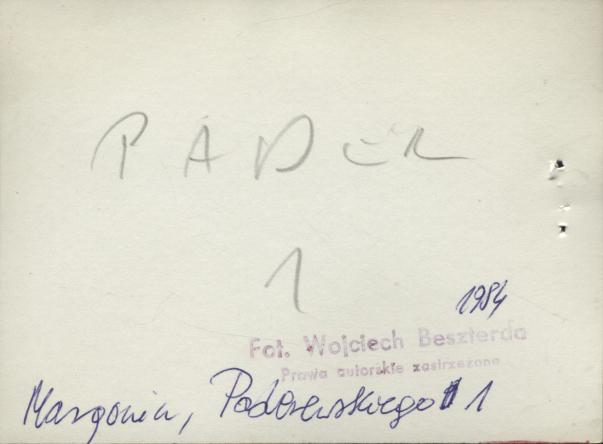 PADER
1
1984
Fot. Wojciech Beszterda
Prawa autorskie zastrzeżone
Margonin, Paderewskiego 1